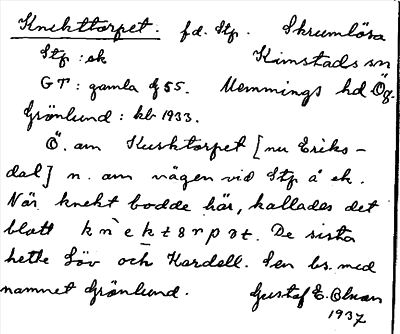 Knekttorpet. fd. Stp. Skrumlösa
Stp : ek Kimstads sn
GT : gamla f 55. Memmings hd Ög.
Grönlund : kb 1933.
Ö. om Kusktorpet [nu Eriks-
dal] n. om vägen vid Stp å ek.
När knekt bodde här, kallades det
blott knektorpet. De sista
hette Löv och Kardell. Sen bs. med
namnet Grönlund. Gustaf E. Olson
1937